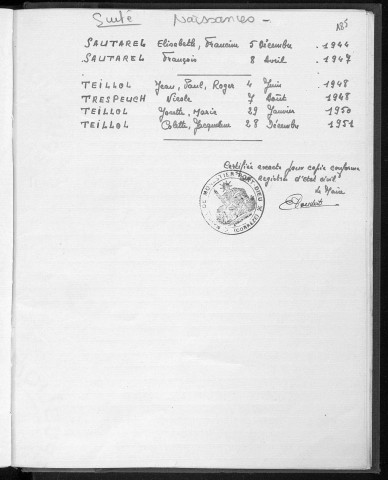 Suite Naissances -
SAUTAREL Elisabeth, Francine 5 Décembre . 1944
SAUTAREL François 8 Avril . 1947
TEILLOL Jean, Paul, Roger 4 Juin . 1948
TRESPEUCH Nicole 7 Août . 1948
TEILLOL Yvette, Marie 29 Janvier . 1950
TEILLOL Colette, Jacqueline 28 Décembre . 1951
Certifiée exacte pour copie conforme
Registre d'état civil
Le Maire